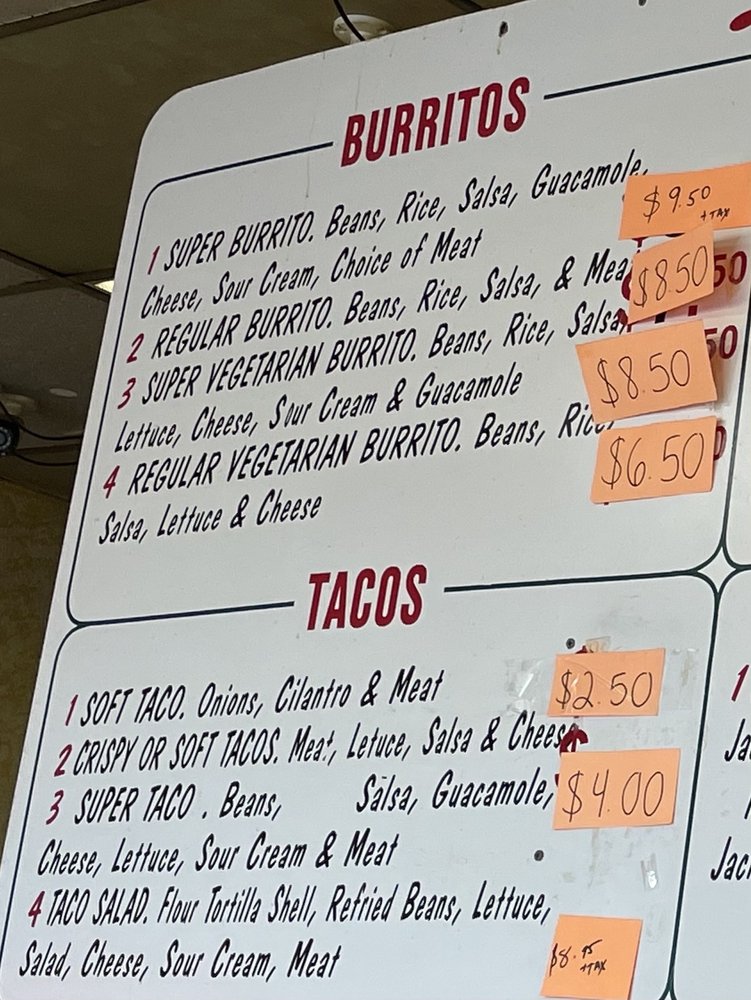 BURRITOS
1 SUPER BURRITO. Beans, Rice, Salsa, Guacamole, $9.50 +TAX
Cheese, Sour Cream, Choice of Meat
2 REGULAR BURRITO. Beans, Rice, Salsa, & Mea $8.50 50
3 SUPER VEGETARIAN BURRITO. Beans, Rice, Salsa, $8.50 50
Lettuce, Cheese, Sour Cream & Guacamole
4 REGULAR VEGETARIAN BURRITO. Beans, Rice, $6.50
Salsa, Lettuce & Cheese
TACOS
1 SOFT TACO. Onions, Cilantro & Meat $2.50
2 CRISPY OR SOFT TACOS. Meat, Letuce, Salsa & Cheese
3 SUPER TACO . Beans, Salsa, Guacamole, $4.00
Cheese, Lettuce, Sour Cream & Meat
4 TACO SALAD. Flour Tortilla Shell, Refried Beans, Lettuce,
Salad, Cheese, Sour Cream, Meat $8.95 +TAX
1
Ja
Jac